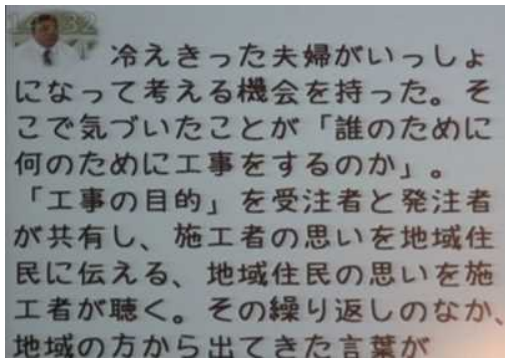 冷えきった夫婦がいっしょ
になって考える機会を持った。そ
こで気づいたことが「誰のために
何のために工事をするのか」。
「工事の目的」を受注者と発注者
が共有し、施工者の思いを地域住
民に伝える、地域住民の思いを施
工者が聴く。その繰り返しのなか、
地域の方から出てきた言葉が